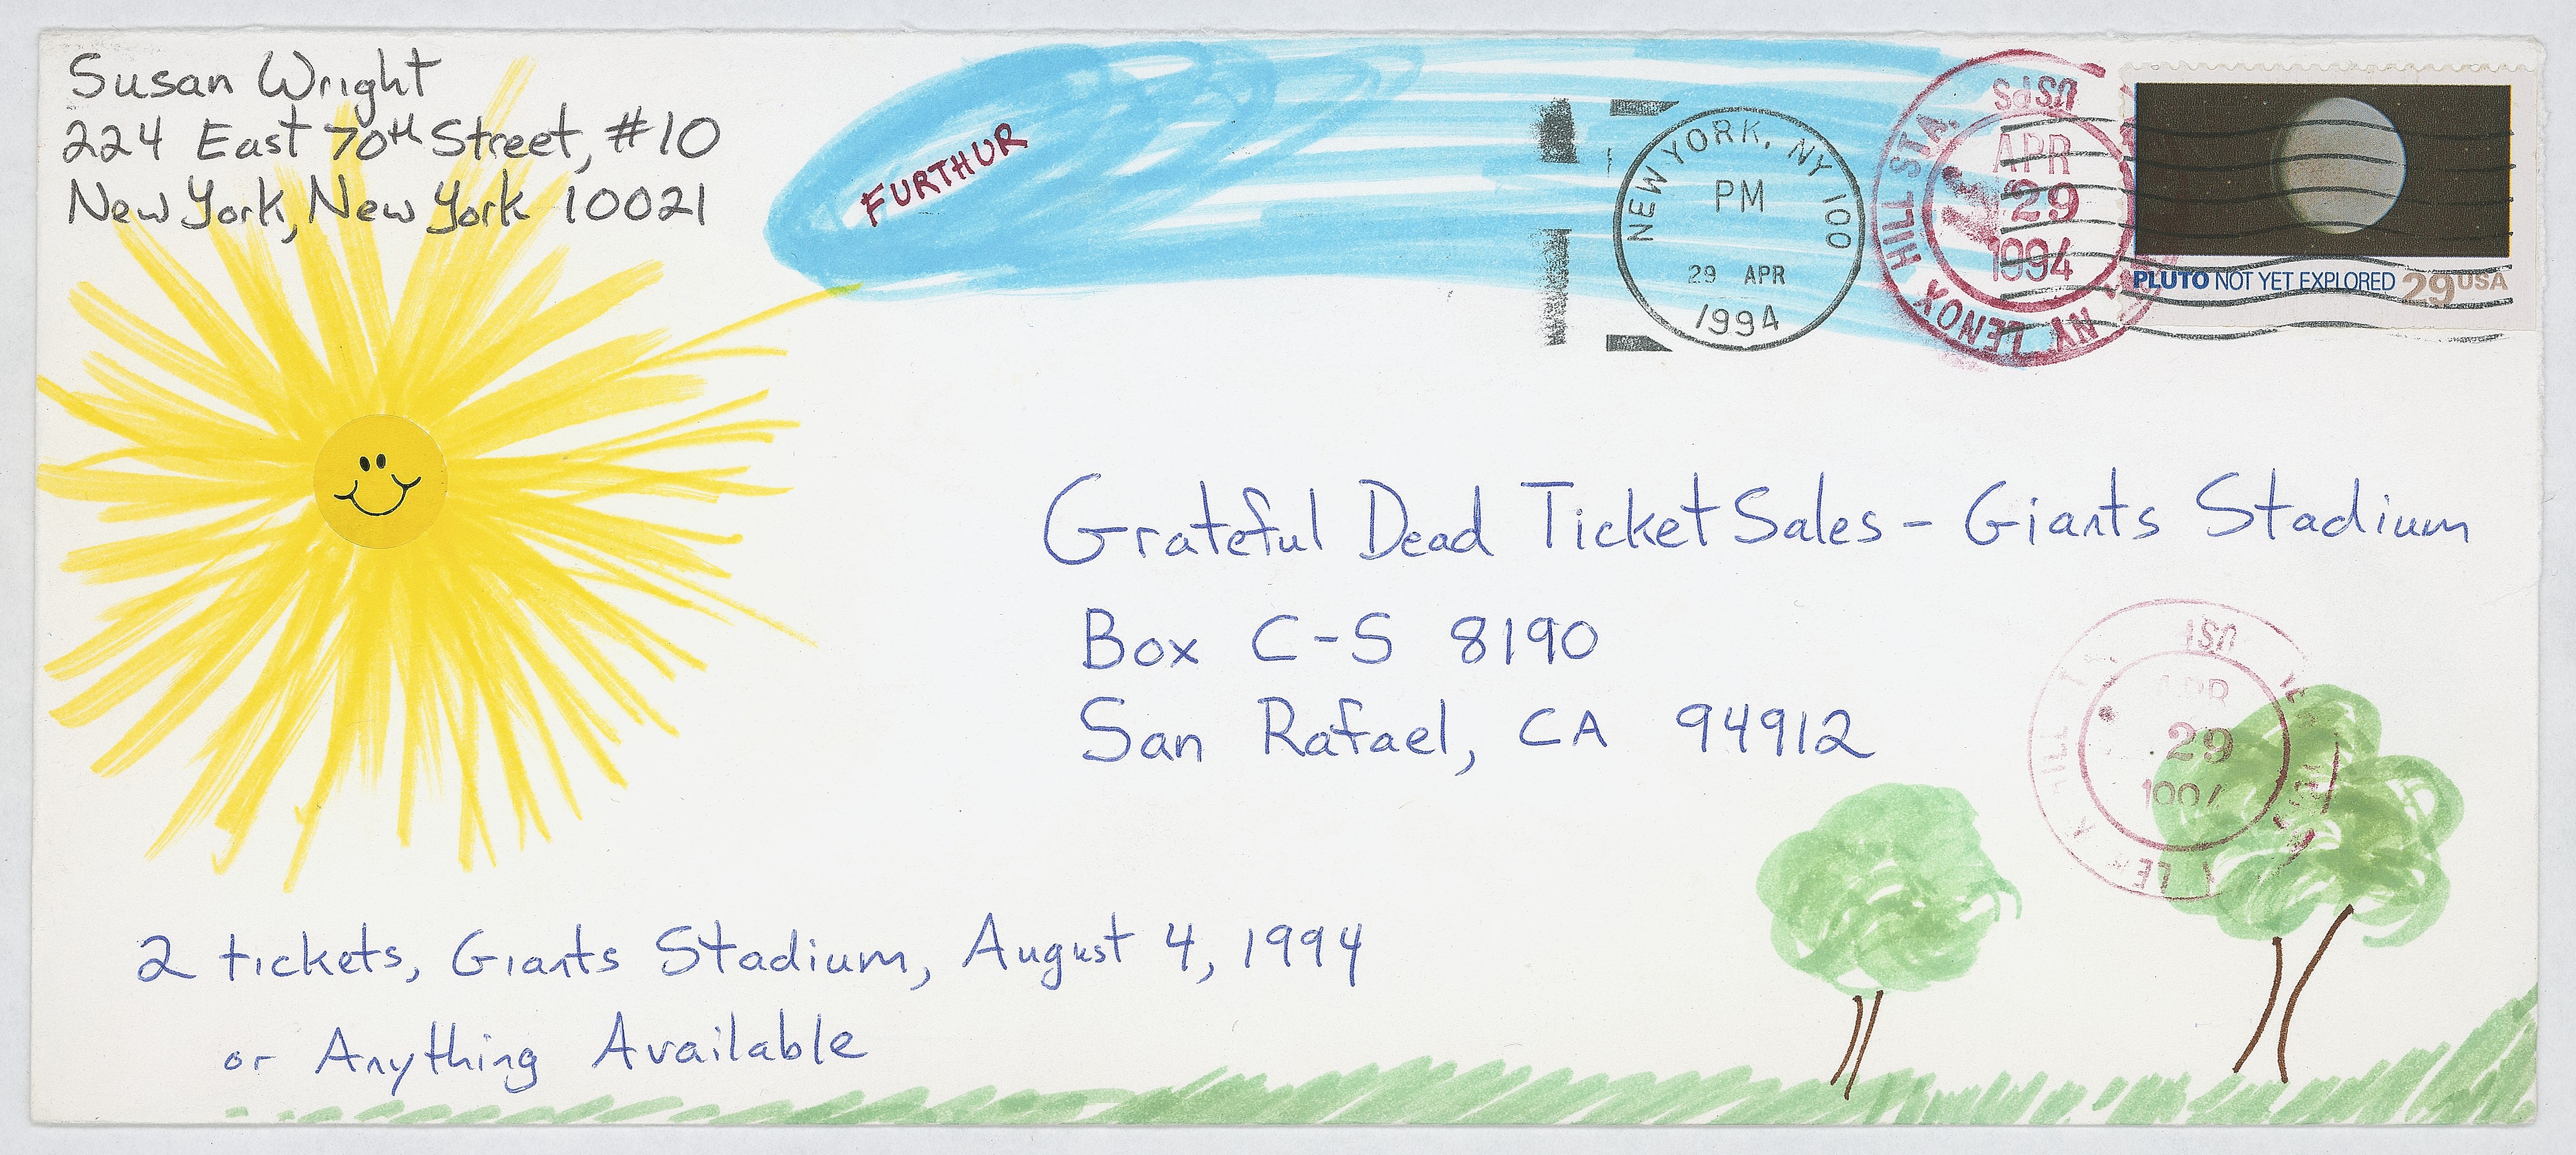 Susan Wright
224 East 70th Street, #10
New York, New York 10021
FURTHUR
NEW YORK, NY 100
PM
29 APR
1994
USPS
HILL STA.
LENOX
NY
APR
29
1994
PLUTO NOT YET EXPLORED 29 USA
Grateful Dead Ticket Sales - Giants Stadium
Box C-S 8190
San Rafael, CA 94912
29
2 tickets, Giants Stadium, August 4, 1994
or Anything Available